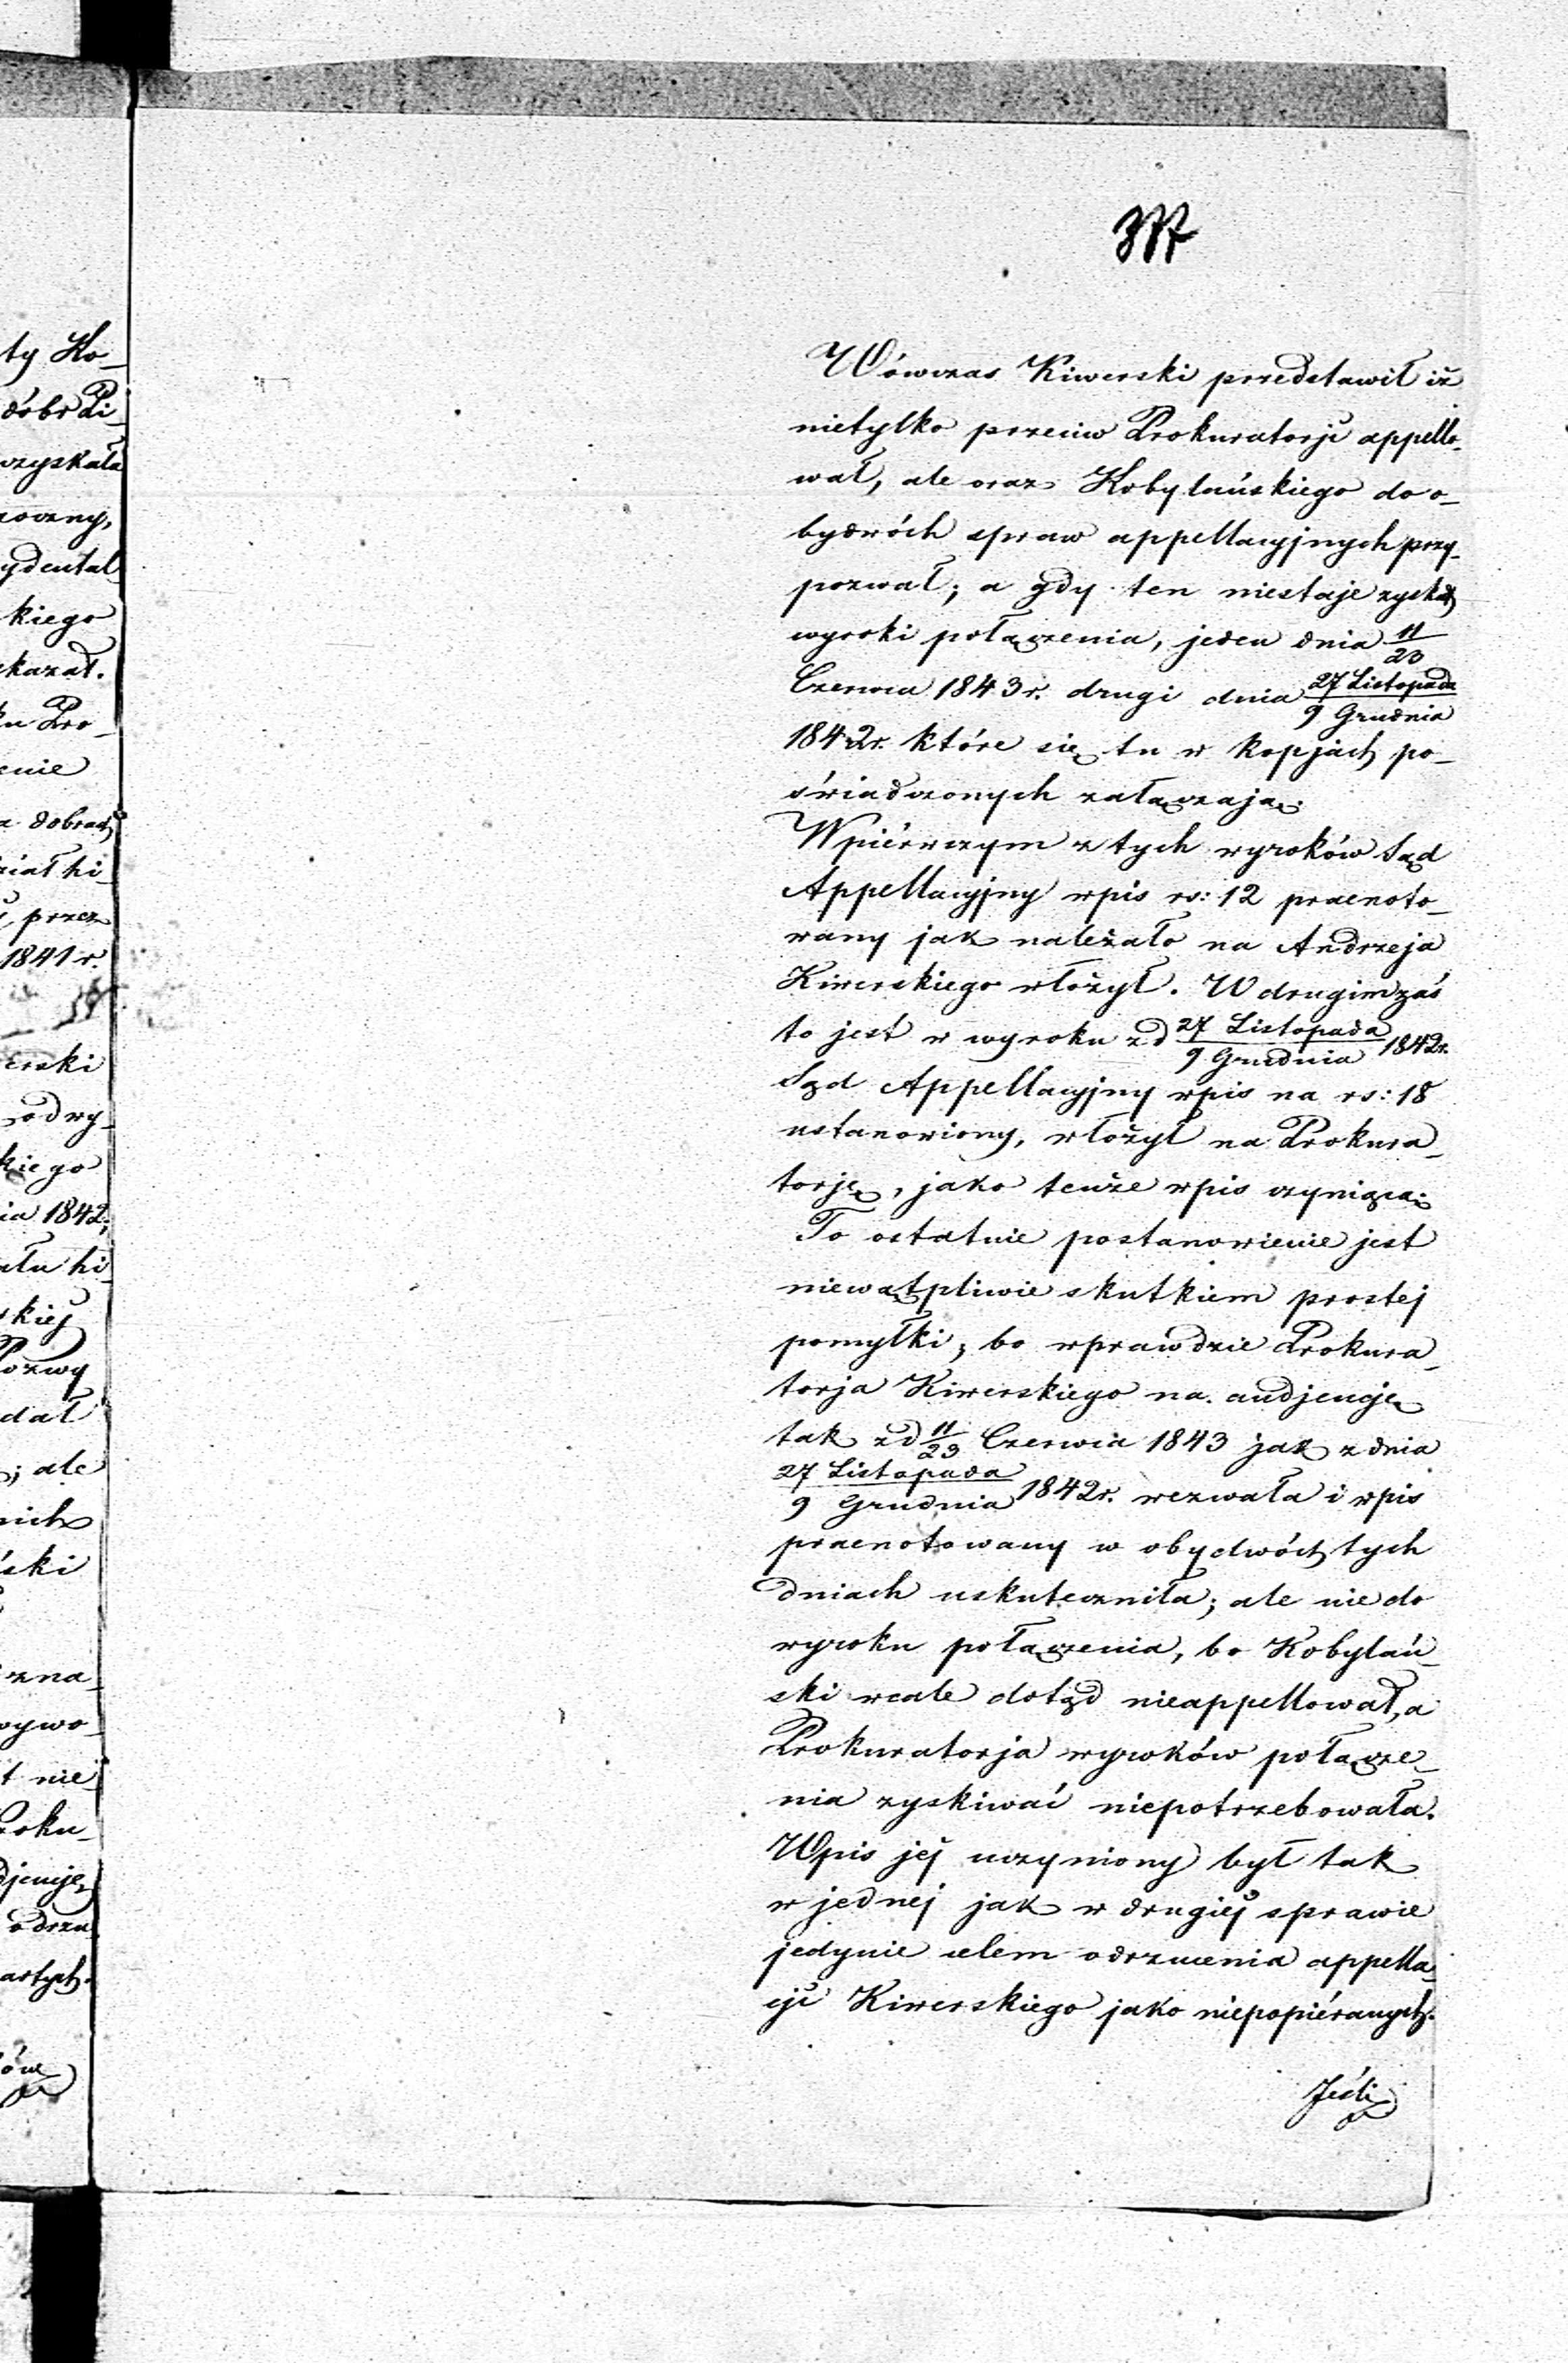 377
Wówczas Kiwerski przedstawił iż
nietylko przeciw Prokuratorji appello-
wał, ale oraz Kobylańskiego do o-
bydwóch spraw appellacyjnych przy-
pozwał; a gdy ten niestaje zyskał
wyroki połączenia, jeden dnia 11/23
Czerwca 1843 r. drugi dnia 27 Listopada/9 Grudnia
1842r. które się tu w kopjach po-
świadczonych załączają.
W piérwszym z tych wyroków Sąd
Appellacyjny wpis rs: 12 praenoto-
wany jak należało na Andrzeja
Kiwerskiego włożył. W drugim zaś
to jest w wyroku z d 27 Listopada/9 Grudnia 1842r.
Sąd Appellacyjny wpis na rs: 18
ustanowiony, włożył na Prokura-
torję, jako tenże wpis czyniącą.
To ostatnie postanowienie jest
niewątpliwie skutkiem prostej
pomyłki; bo wprawdzie Prokura-
torja Kiwerskiego na audjencję
tak z d 11/23 Czerwca 1843 jak z dnia
27 Listopada/9 Grudnia 1842r. wezwała i wpis
praenotowany w obydwóch tych
dniach uskuteczniła; ale nie do
wyroku połączenia, bo Kobylań-
ski wcale dotąd nieappellował, a
Prokuratorja wyroków połącze-
nia zyskiwać niepotrzebowała.
Wpis jej uczyniony był tak
w jednej jak w drugiej sprawie
jedynie celem odrzucenia appella-
cji Kiwerskiego jako niepopiéranych.
Jeśli
ty Ko-
dóbr Li-
kiego
nia 1842;
skiej
Pozwy
dał
; ale
nich
zna-
t nie